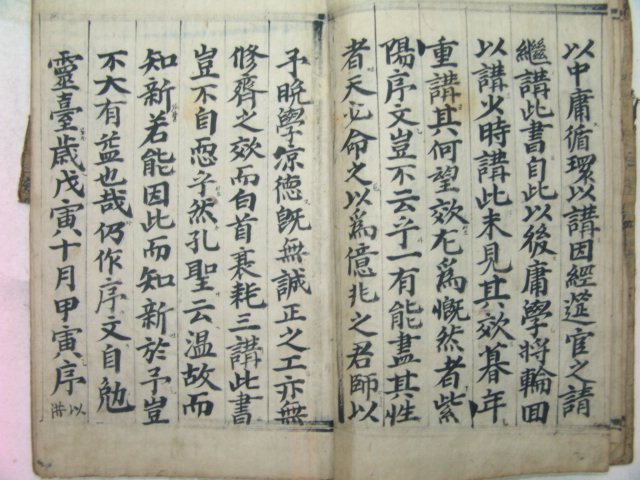 以中庸循環以講因經筵官之請
繼講此書自此以後庸學將輪回
以講少時講此未見其效暮年
重講其何望效尤爲慨然者紫
陽序文豈不云乎一有能盡其性
者天必命之以爲億兆之君師以
予晩學凉德旣無誠正之工亦無
修齊之效而白首衰耗三講此書
豈不自恧乎然孔聖云溫故而
知新若能因此而知新於予豈
不大有益也哉仍作序文自勉
靈臺歲戊寅十月甲寅序